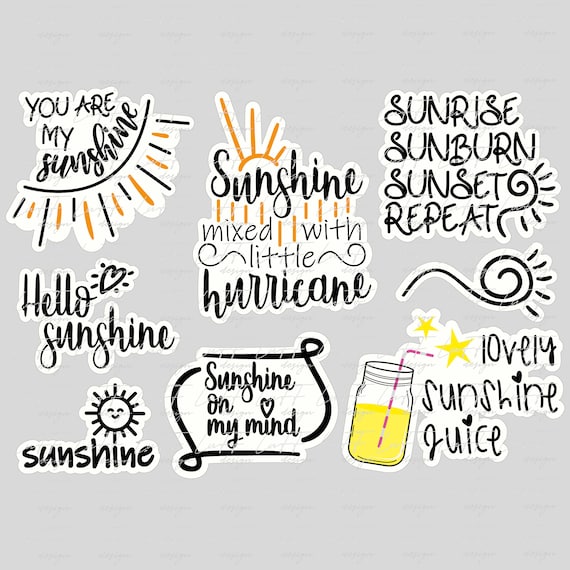 YOU ARE
MY
sunshine
Sunshine
mixed with
little
hurricane
SUNRISE
SUNBURN
SUNSET
REPEAT
Hello
sunshine
sunshine
Sunshine
on
my mind
lovely
sunshine
juice